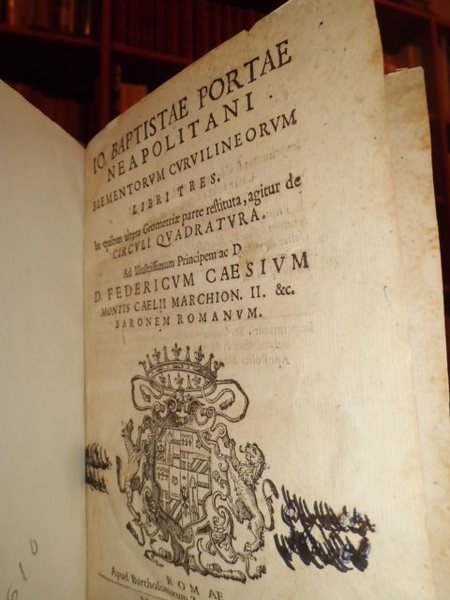 IO. BAPTISTAE PORTAE
NEAPOLITANI
ELEMENTORVM CVRVILINEORVM
LIBRI TRES.
In quibus altera Geometriæ parte restituta, agitur de
CIRCVLI QVADRATVRA.
Ad Illustrissimum Principem ac D.
D. FEDERICVM CAESIVM
MONTIS CAELII MARCHION. II. &c.
BARONEM ROMANVM.
ROMAE
Apud Bartholomæum
610